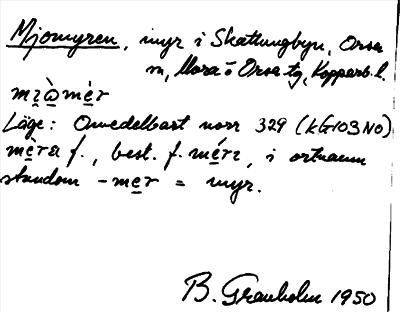 Mjomyren, myr i Skattungbyn, Orsa
sn, Mora o Orsa tg, Kopparb. l.
Läge: Omedelbart norr 329 (kG103NO)
f., best. f. i ortnamn
stundom -mer = myr.
B. Granholm 1950